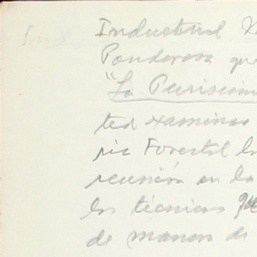 Industrial
Ponderosa que
"La Purísim
ted examinas
ric Forestal la
reunión en la
los técnicos que
de manera de